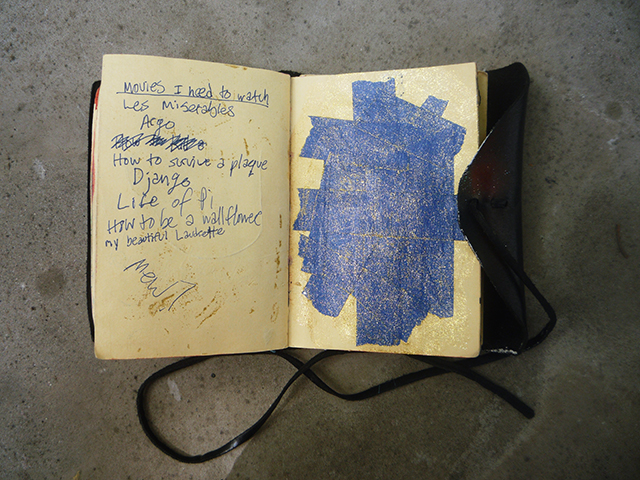 Movies I need to watch
Les Miserables
Argo
How to survive a plaque
Django
Life of Pi
How to be a wallflower
my beautiful Laukrette
Mew